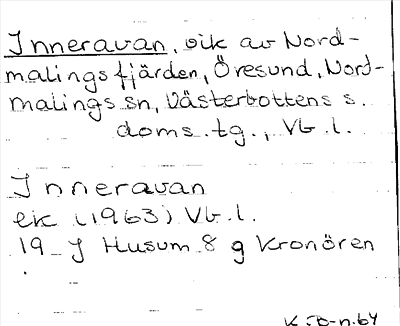 Inneravan, vik av Nord-
malingsfjärden, Öresund, Nord-
malings sn, Västerbottens s.
doms.tg., Vb.l.
Inneravan
ek (1963) Vb.l.
19 J Husum 8 g Kronören